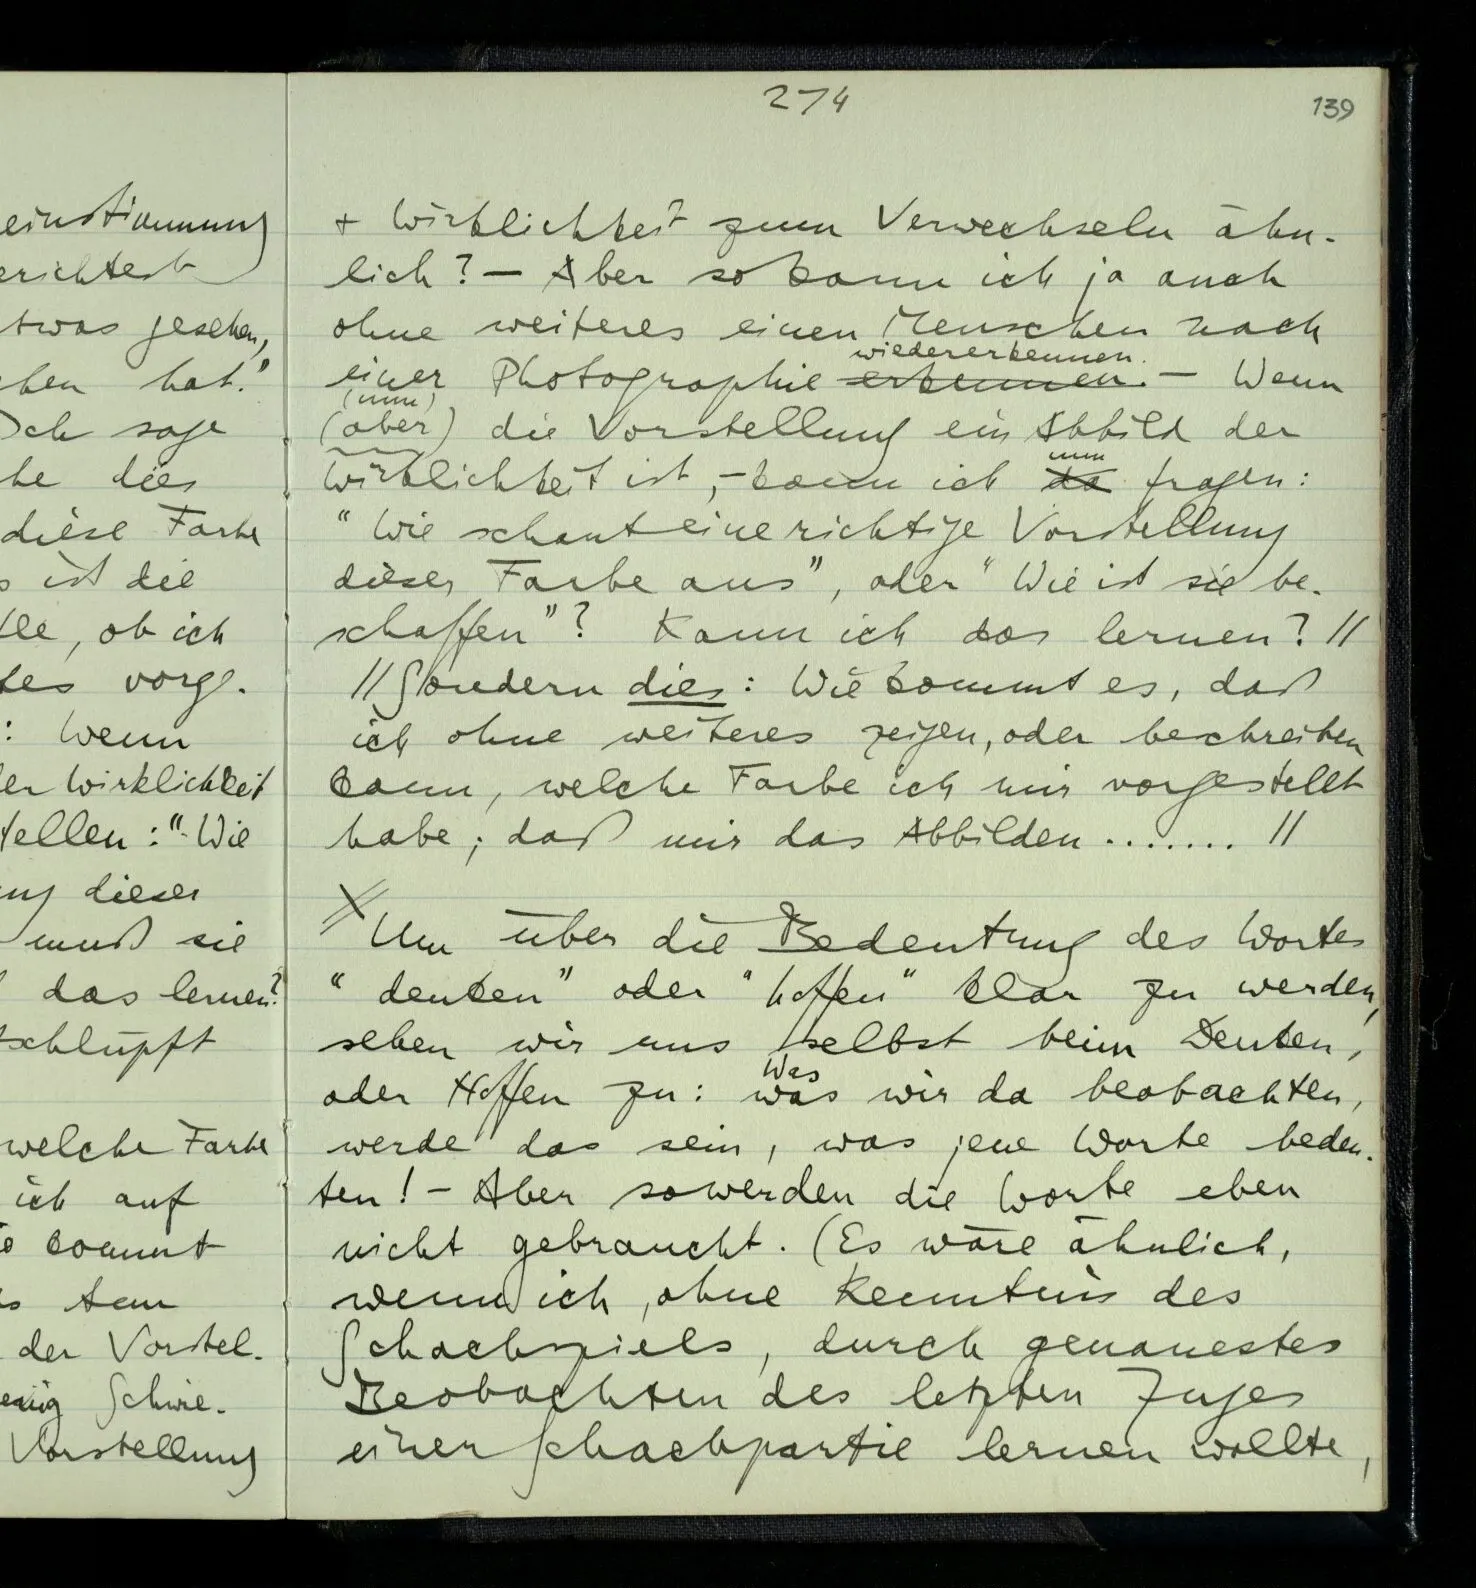 274
139
einstimmung
gesehen,
hat."
Ich sage
dies
diese Farbe
ist die
, ob ich
vorge-
: Wenn
Wirklichkeit
: "Wie
dieser
muß sie
das lernen?
schlüpft
welche Farbe
ich auf
kommt
der Vorstel-
Schwie-
Vorstellung
+ Wirklichkeit zum Verwechseln ähn-
lich? – Aber so kann ich ja auch
ohne weiteres einen Menschen nach
wiedererkennen.
einer Photographie erkennen. – Wenn
(nun)
(aber) die Vorstellung ein Abbild der
nun
Wirklichkeit ist, – kann ich da fragen:
"Wie schaut eine richtige Vorstellung
dieser Farbe aus", oder "Wie ist sie be-
schaffen"? Kann ich das lernen? //
// Sondern dies: Wie kommt es, daß
ich ohne weiteres zeigen, oder beschreiben
kann, welche Farbe ich mir vorgestellt
habe; daß mir das Abbilden ....... //
Um über die Bedeutung des Wortes
"denken" oder "hoffen" klar zu werden,
sehen wir uns selbst beim Denken,
Was
oder Hoffen zu: was wir da beobachten,
werde das sein, was jene Worte bedeu-
ten! – Aber so werden die Worte eben
nicht gebraucht. (Es wäre ähnlich,
wenn ich, ohne Kenntnis des
Schachspiels, durch genauestes
Beobachten des letzten Zuges
einer Schachpartie lernen wollte,